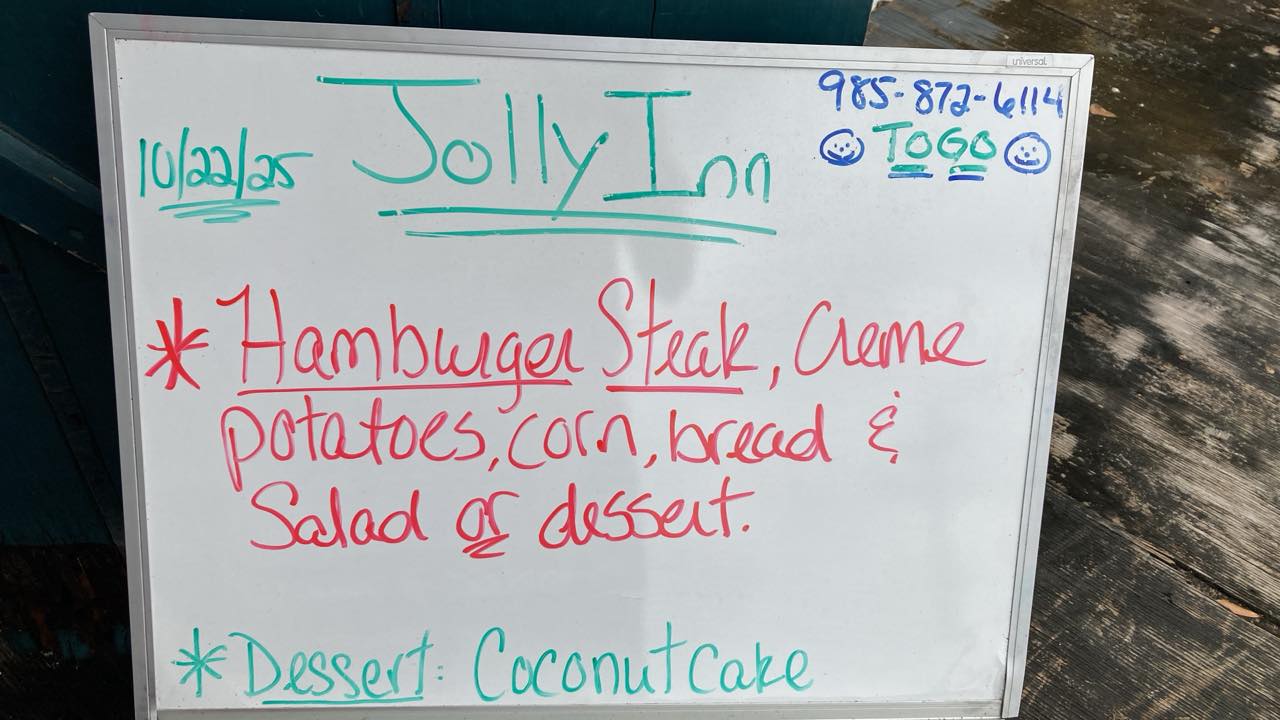 universal
Jolly Inn
985-872-6114
10/22/25
TOGO
* Hamburger Steak, Creme
potatoes, corn, bread &
Salad or dessert.
* Dessert: Coconut Cake